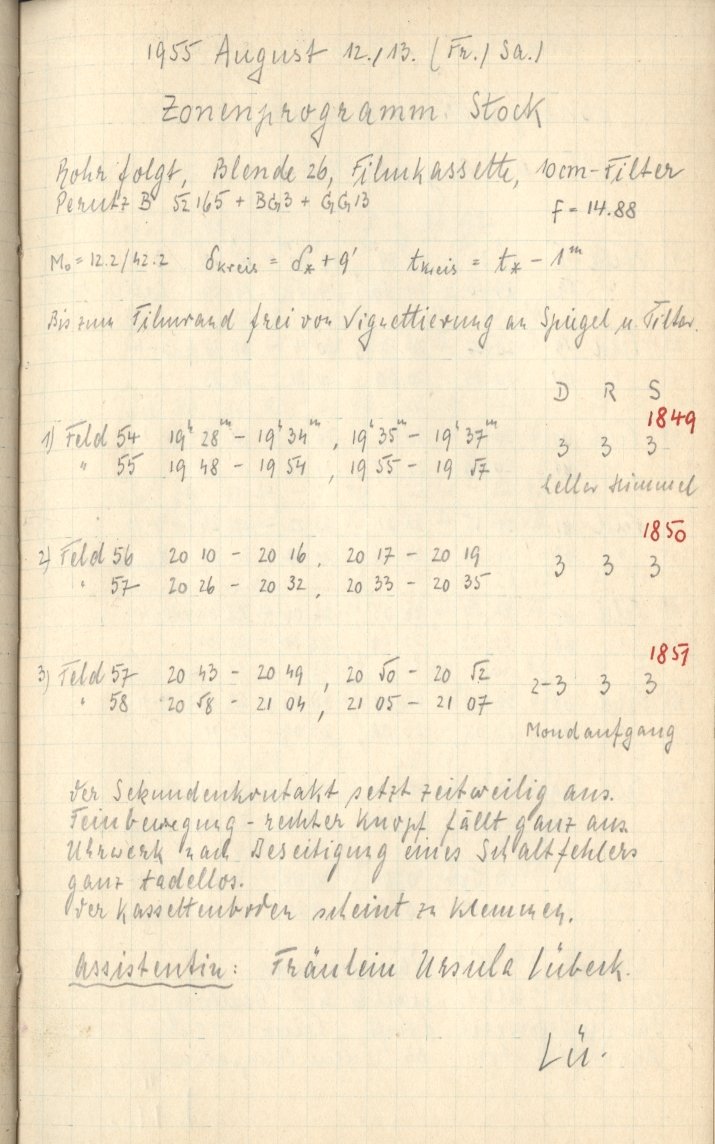 1955 August 12./13. (Fr./Sa.)
Zonenprogramm Stock
Rohr folgt, Blende 26, Filmkassette, 10cm-Filter
Perutz B 52165 + BG3 + GG13 f = 14.88
M₀ = 12.2/42.2 δKreis = δ* + 9' tKreis = t* - 1ᵐ
Bis zum Filmrand frei von Vignettierung an Spiegel u. Filter.
D R S
1849
1) Feld 54 19ʰ 28ᵐ - 19ʰ 34ᵐ, 19ʰ 35ᵐ - 19ʰ 37ᵐ 3 3 3
" 55 19 48 - 19 54, 19 55 - 19 57
heller Himmel
1850
2) Feld 56 20 10 - 20 16, 20 17 - 20 19 3 3 3
" 57 20 26 - 20 32, 20 33 - 20 35
1851
3) Feld 57 20 43 - 20 49, 20 50 - 20 52 2-3 3 3
" 58 20 58 - 21 04, 21 05 - 21 07
Mondaufgang
Der Sekundenkontakt setzt zeitweilig aus.
Feinbewegung - rechter Knopf fällt ganz aus.
Uhrwerk nach Beseitigung eines Schaltfehlers
ganz tadellos.
Der Kassettenboden scheint zu klemmen.
Assistentin: Fräulein Ursula Lübeck.
Lü.